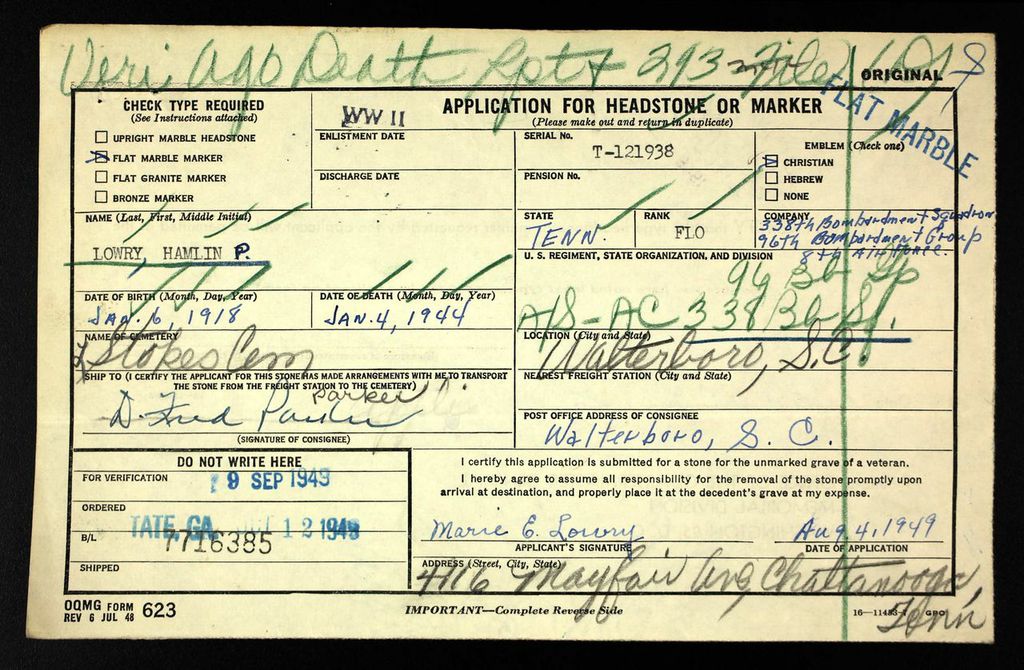 Veri, Ago Death Rpt + 293 File
ORIGINAL
FLAT MARBLE
CHECK TYPE REQUIRED
(See Instructions attached)
UPRIGHT MARBLE HEADSTONE
FLAT MARBLE MARKER
FLAT GRANITE MARKER
BRONZE MARKER
WW II
ENLISTMENT DATE
DISCHARGE DATE
APPLICATION FOR HEADSTONE OR MARKER
(Please make out and return in duplicate)
SERIAL No.
T-121938
PENSION No.
EMBLEM (Check one)
CHRISTIAN
HEBREW
NONE
NAME (Last, First, Middle Initial)
LOWRY, HAMLIN P.
STATE
TENN.
RANK
FLO
COMPANY
338th Bombardment Squadron
96th Bombardment Group
8th Air Force.
U. S. REGIMENT, STATE ORGANIZATION, AND DIVISION
96 Bb Gp
A/S-AC 338 Bb Sq.
DATE OF BIRTH (Month, Day, Year)
JAN. 6, 1918
DATE OF DEATH (Month, Day, Year)
JAN. 4, 1944
NAME OF CEMETERY
Stokes Cem
LOCATION (City and State)
Walterboro, S.C.
SHIP TO (I CERTIFY THE APPLICANT FOR THIS STONE HAS MADE ARRANGEMENTS WITH ME TO TRANSPORT
THE STONE FROM THE FREIGHT STATION TO THE CEMETERY)
Parker
D. Fred Parker
(SIGNATURE OF CONSIGNEE)
NEAREST FREIGHT STATION (City and State)
POST OFFICE ADDRESS OF CONSIGNEE
Walterboro, S. C.
DO NOT WRITE HERE
FOR VERIFICATION
9 SEP 1949
ORDERED
TATE, GA. 12 1949
B/L
7716385
SHIPPED
I certify this application is submitted for a stone for the unmarked grave of a veteran.
I hereby agree to assume all responsibility for the removal of the stone promptly upon
arrival at destination, and properly place it at the decedent's grave at my expense.
Marie E. Lowry
APPLICANT'S SIGNATURE
Aug 4, 1949
DATE OF APPLICATION
ADDRESS (Street, City, State)
4116 Mayfair Ave, Chattanooga,
Tenn
OQMG FORM 623
REV 6 JUL 48
IMPORTANT—Complete Reverse Side
GPO